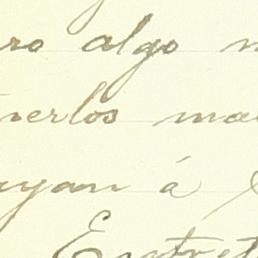 ro algo
nerlos ma
ayan á
Entret